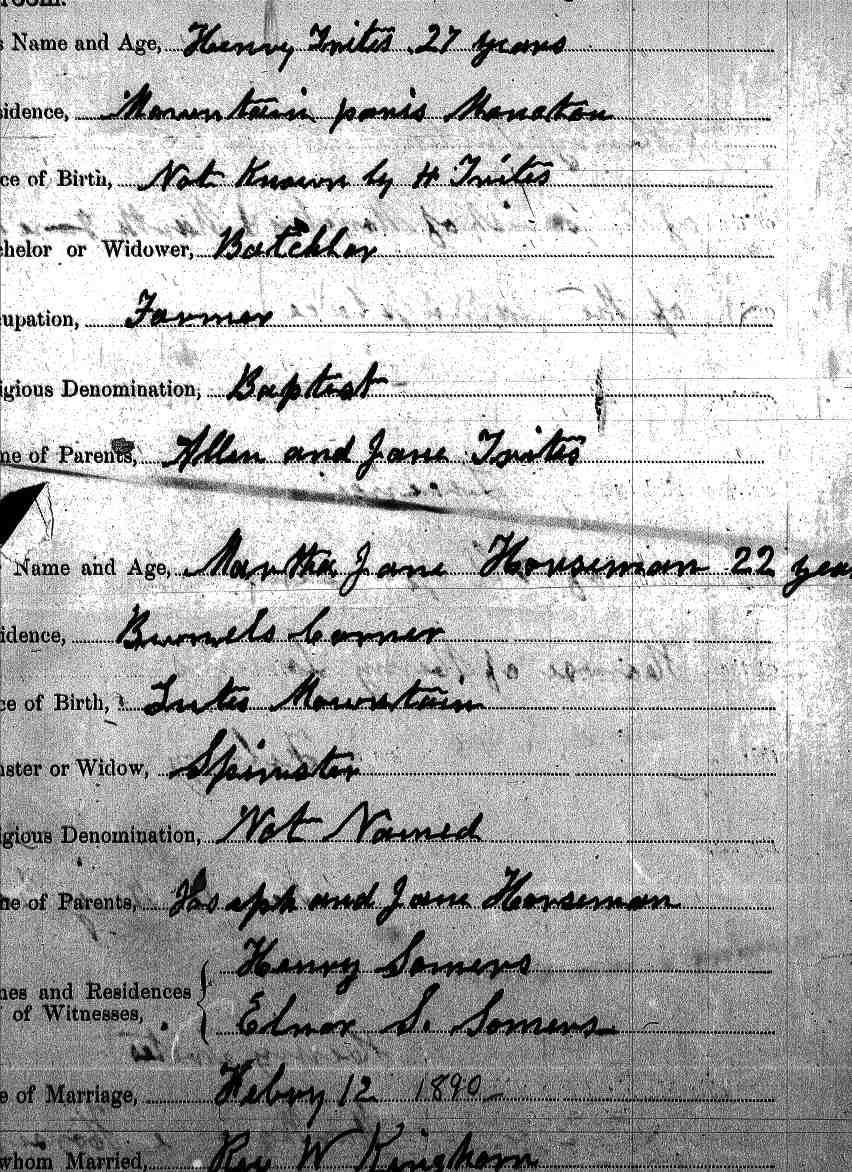 room.
s Name and Age, Henry Trites 27 years
sidence, Mountain paris Moncton
ce of Birth, Not Known by H Trites
chelor or Widower, Batchlor
cupation, Farmer
igious Denomination, Baptist
me of Parents, Allen and Jane Trites
Name and Age, Martha Jane Horseman 22 yea
idence, Corner
ce of Birth, Trites Mountain
nster or Widow, Spinster
igious Denomination, Not Named
ne of Parents, Joseph and Jane Horseman
nes and Residences Henry Somers
of Witnesses, Elnor S. Somers
e of Marriage, Febry 12 1890
whom Married, Rev W Kinghorn